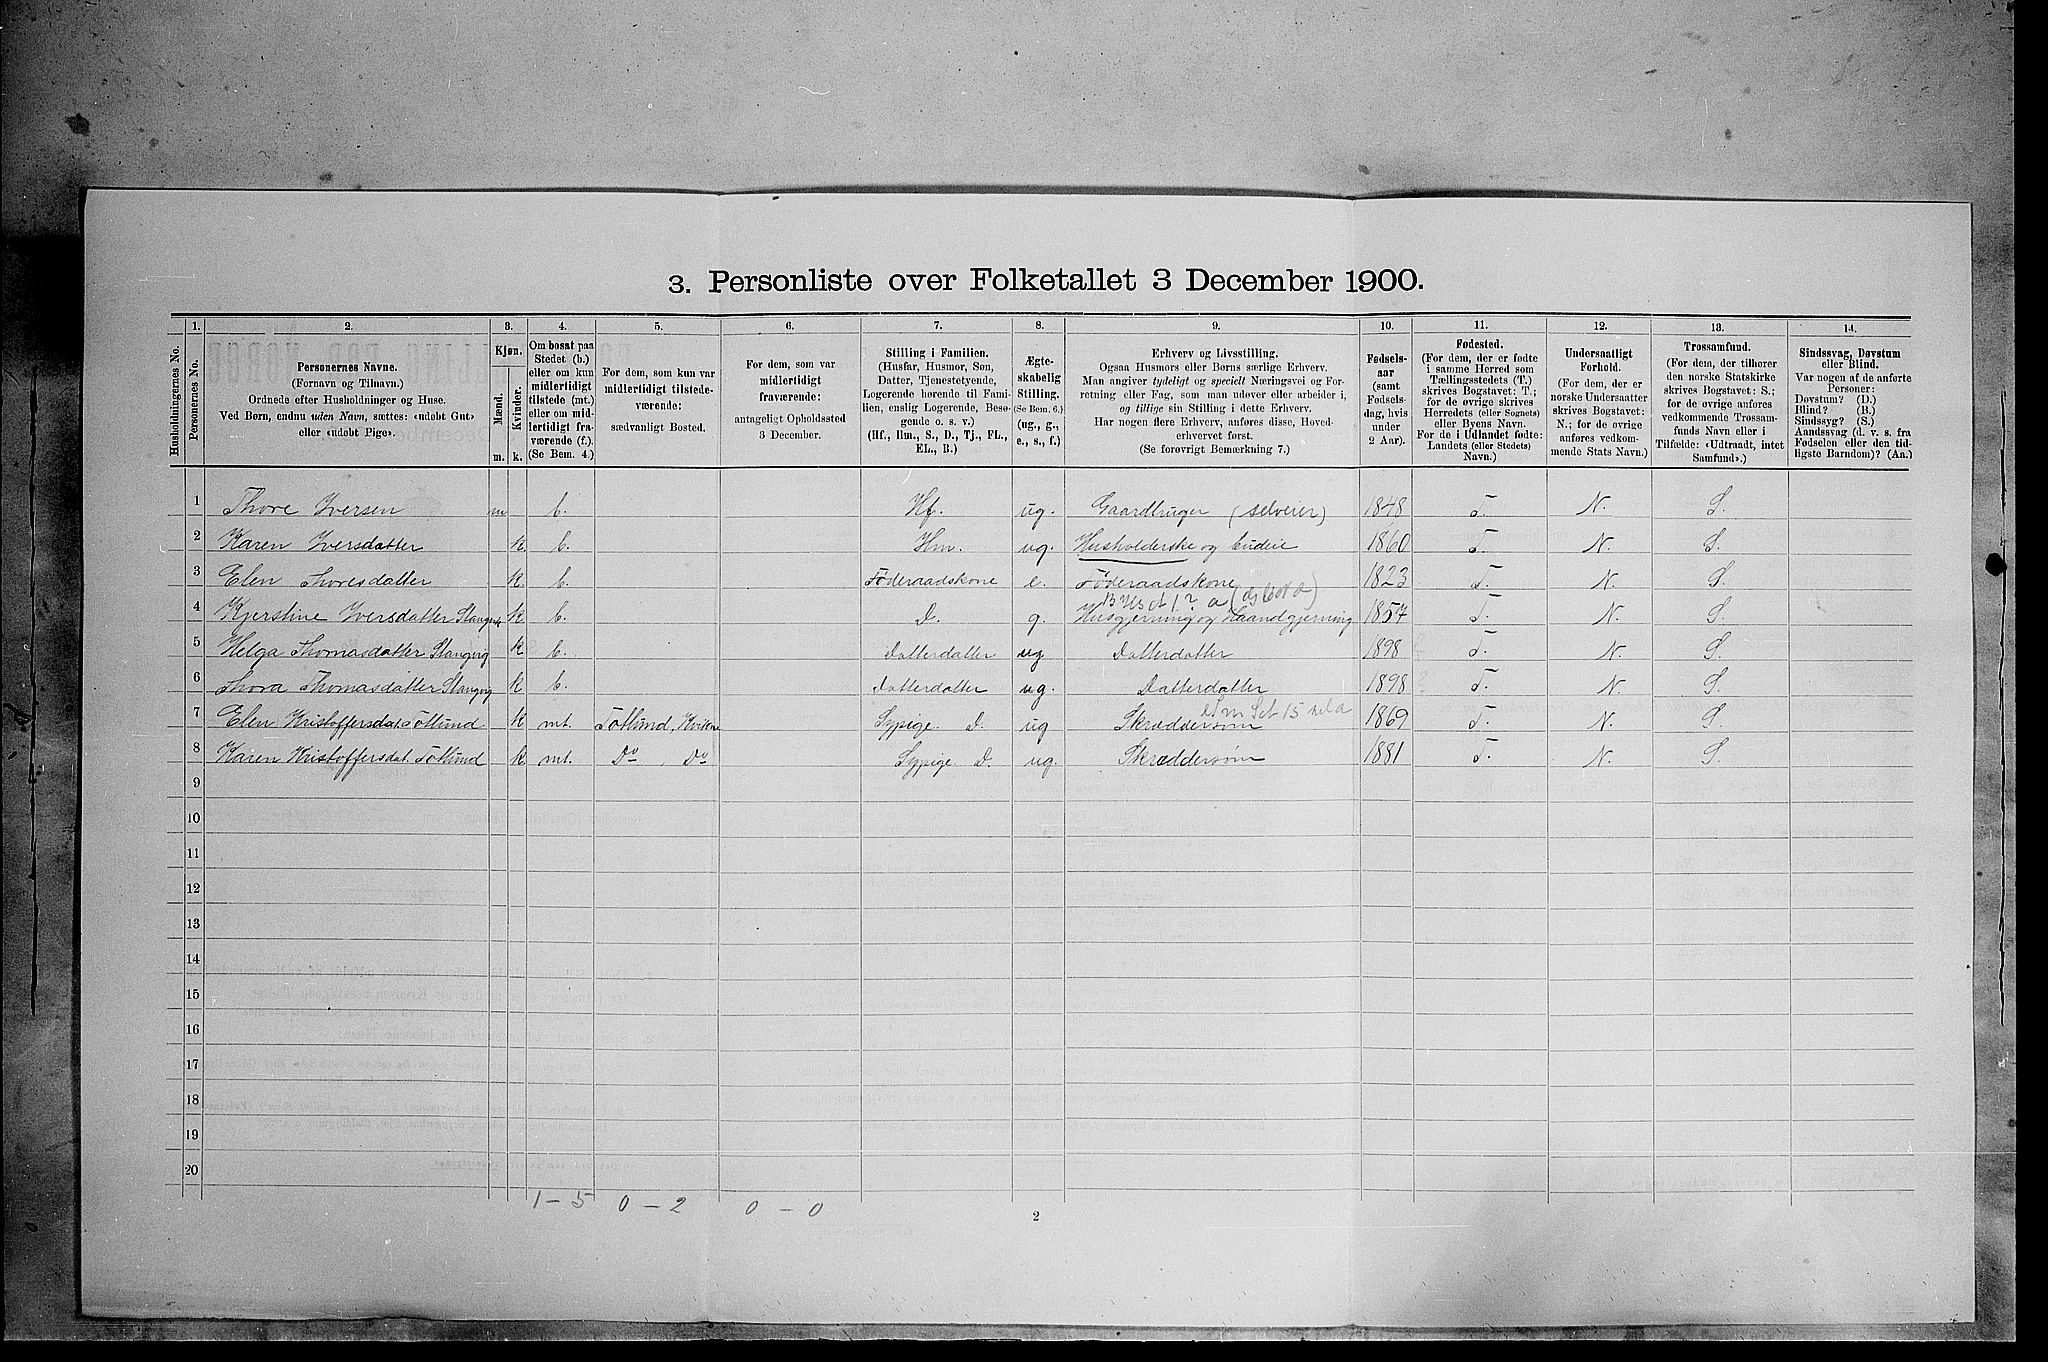 3. Personliste over Folketallet 3 December 1900.
Husholdningernes No.
1. Personernes No.
2. Personernes Navne.
(Fornavn og Tilnavn.)
Ordnede efter Husholdninger og Huse.
Ved Børn, endnu uden Navn, sættes: «udøbt Gut»
eller «udøbt Pige».
3. Kjøn.
Mænd. m.
Kvinder. k.
4. Om bosat paa
Stedet (b.)
eller om kun
midlertidigt
tilstede (mt.)
eller om mid-
lertidigt fra-
værende (f.).
(Se Bem. 4.)
5. For dem, som kun var
midlertidigt tilstede-
værende:
sædvanligt Bosted.
6. For dem, som var
midlertidigt
fraværende:
antageligt Opholdssted
3 December.
7. Stilling i Familien.
(Husfar, Husmor, Søn,
Datter, Tjenestetyende,
Logerende hørende til Fami-
lien, enslig Logerende, Besø-
gende o. s. v.)
(Hf., Hm., S., D., Tj., FL.,
EL., B.)
8. Ægte-
skabelig
Stilling.
(Se Bem. 6.)
(ug., g.,
e., s., f.)
9. Erhverv og Livsstilling.
Ogsaa Husmors eller Børns særlige Erhverv.
Man angiver tydeligt og specielt Næringsvei og For-
retning eller Fag, som man udøver eller arbeider i,
og tillige sin Stilling i dette Erhverv.
Har nogen flere Erhverv, anføres disse, Hoved-
erhvervet først.
(Se forøvrigt Bemærkning 7.)
10. Fødsels-
aar
(samt
Fødsels-
dag, hvis
under
2 Aar).
11. Fødested.
(For dem, der er fødte
i samme Herred som
Tællingsstedets (T.)
skrives Bogstavet: T.;
for de øvrige skrives
Herredets (eller Sognets)
eller Byens Navn.
For de i Udlandet fødte:
Landets (eller Stedets)
Navn.)
12. Undersaatligt
Forhold.
(For dem, der er
norske Undersaatter
skrives Bogstavet:
N.; for de øvrige
anføres vedkom-
mende Stats Navn.)
13. Trossamfund.
(For dem, der tilhører
den norske Statskirke
skrives Bogstavet: S.;
for de øvrige anføres
vedkommende Trossam-
funds Navn eller i
Tilfælde: «Udtraadt, intet
Samfund».)
14. Sindssvag, Døvstum
eller Blind.
Var nogen af de anførte
Personer:
Døvstum? (D.)
Blind? (B.)
Sindssyg? (S.)
Aandssvag (d. v. s. fra
Fødselen eller den tid-
ligste Barndom)? (Aa.)
1 Thore Iversen m b. Hf. ug. Gaardbruger (selveier) 1848 T. N. S.
2 Karen Iversdatter k b. Hm. ug. Husholderske og budeie 1860 T. N. S.
3 Elen Thoresdatter k b. Föderaadskone e. Föderaadskone 1823 T. N. S.
4 Kjerstine Iversdatter k b. D. g. Husgjerning og Haandgjerning 1857 T. N. S.
5 Helga Thomasdatter k b. Datterdatter ug Datterdatter 1898 T. N. S.
6 Thora Thomasdatter k b. Datterdatter ug. Datterdatter 1898 ? T. N. S.
7 Elen Kristoffersdat. Tötlund k mt. Tötlund, Sypige D. ug Skræddersøm 1869 T. N. S.
8 Karen Kristoffersdat. Tötlund k mt. Do Do Sypige D. ug. Skræddersøm 1881 T. N. S.
9
10
11
12
13
14
15
16
17
18
19
20
1 – 5 0 – 2 0 – 0
2